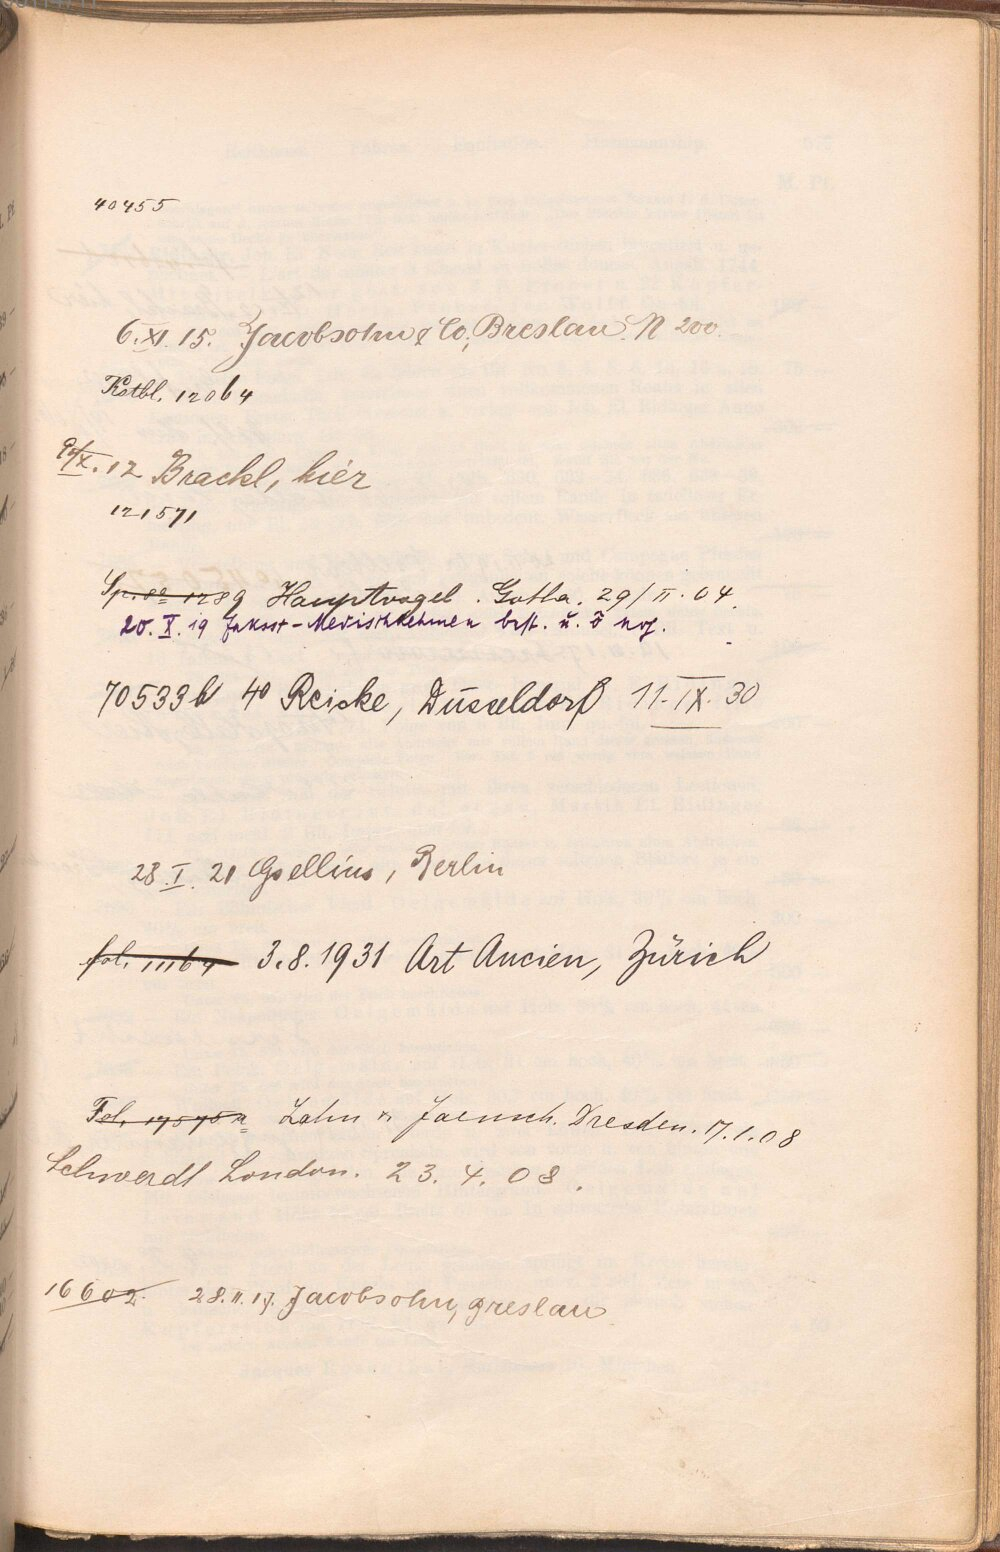 40455
6.XI.15. Jacobsohn & Co, Breslau. N 200.
Kstbl. 12064
9/X.12 Brackl, hier
121571
Hauptvogel. Gotha. 29/II.04.
20.X.19 best. u.
70533b 4° Reicke, Düsseldorf 11.IX.30
28.I.21 Gsellius, Berlin
fol. 11164 3.8.1931 Art Ancien, Zürich
Fol. 17575a Zahn u. Jaensch. Dresden. 17.1.08
Schwerdt London. 23.4.08.
16602. 28.II.17. Jacobsohn, Breslau